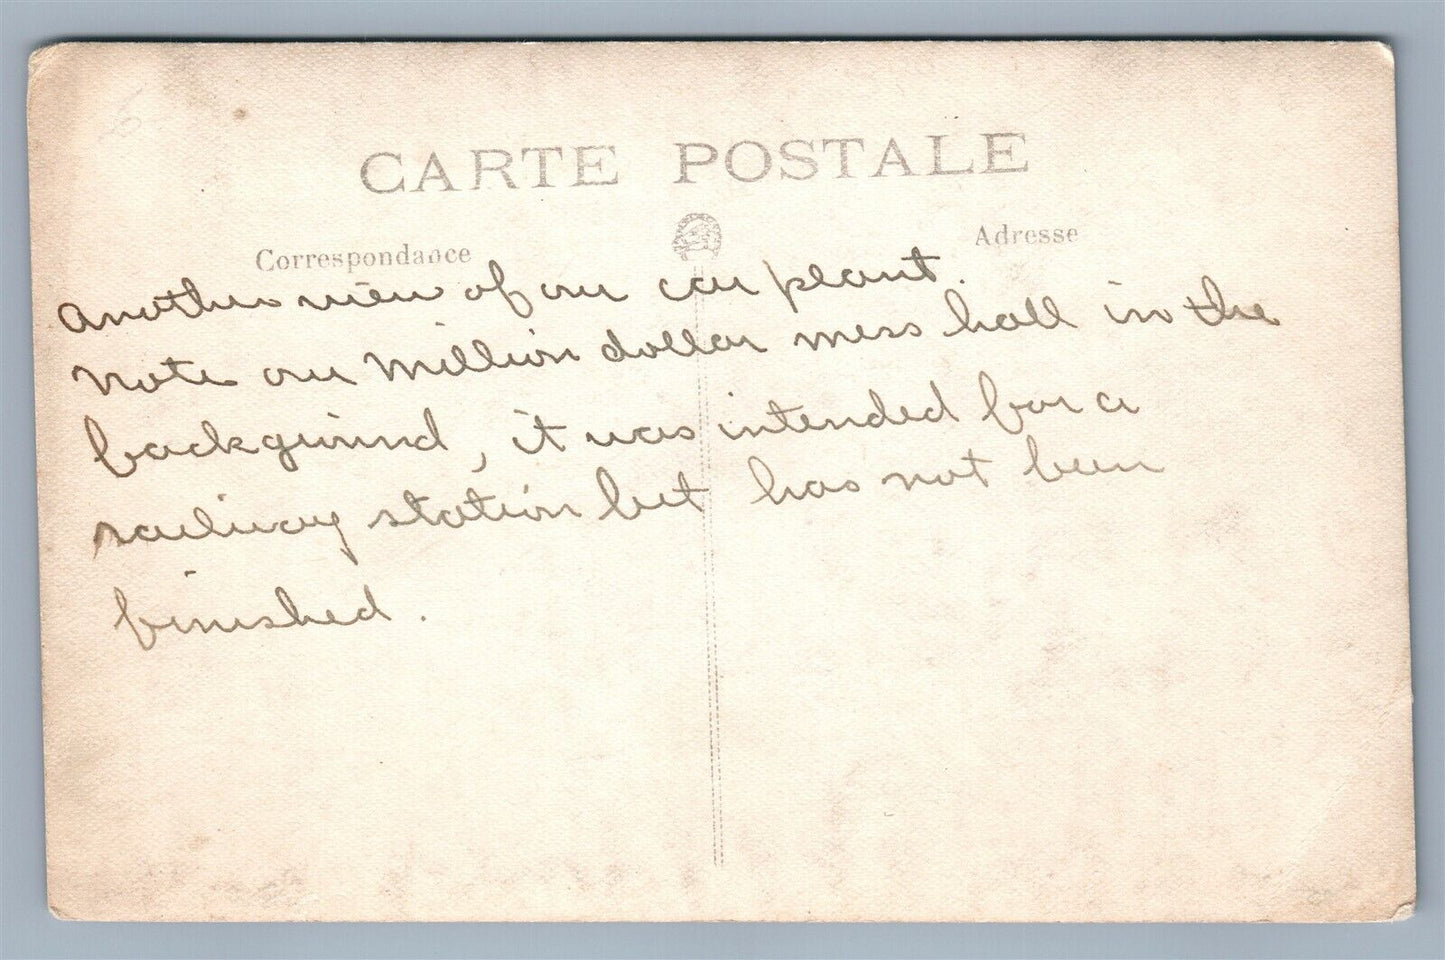 CARTE POSTALE
Correspondance
Adresse
Another view of our car plant.
Note our million dollar mess hall in the
background, it was intended for a
railway station but has not been
finished.